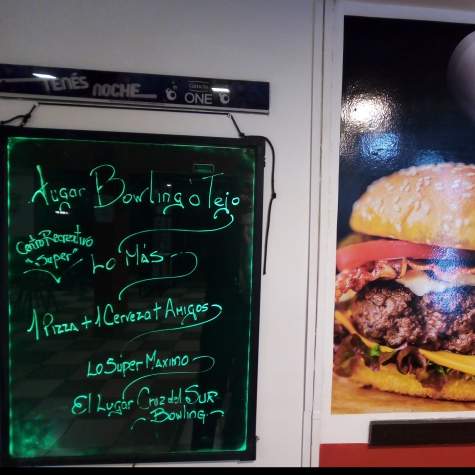 TENÉS NOCHE
ONE
Jugar Bowling o Tejo
Centro Recreativo
"Super"
Lo Más
1 Pizza + 1 Cerveza + Amigos
Lo Súper Maximo
El Lugar Cruz del Sur
Bowling.